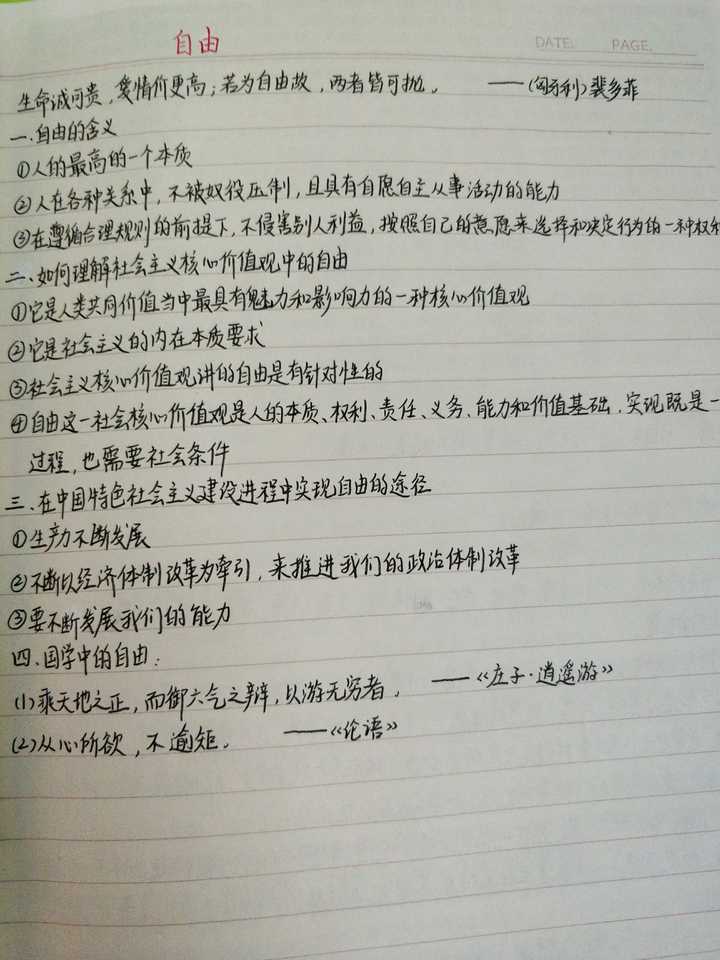 自由
DATE: PAGE.
生命诚可贵，爱情价更高；若为自由故，两者皆可抛。 ——(匈牙利)裴多菲
一.自由的含义
①人的最高的一个本质
②人在各种关系中，不被奴役压制，且具有自愿自主从事活动的能力
③在遵循合理规则的前提下，不侵害别人利益，按照自己的意愿来选择和决定行为的一种权利
二、如何理解社会主义核心价值观中的自由
①它是人类共同价值当中最具有魅力和影响力的一种核心价值观
②它是社会主义的内在本质要求
③社会主义核心价值观讲的自由是有针对性的
④自由这一社会核心价值观是人的本质、权利、责任、义务、能力和价值基础，实现既是一
过程，也需要社会条件
三、在中国特色社会主义建设进程中实现自由的途径
①生产力不断发展
②不断以经济体制改革为牵引，来推进我们的政治体制改革
③要不断发展我们的能力
四.国学中的自由：
(1)乘天地之正，而御六气之辩，以游无穷者。 ——《庄子·逍遥游》
(2)从心所欲，不逾矩。 ——《论语》